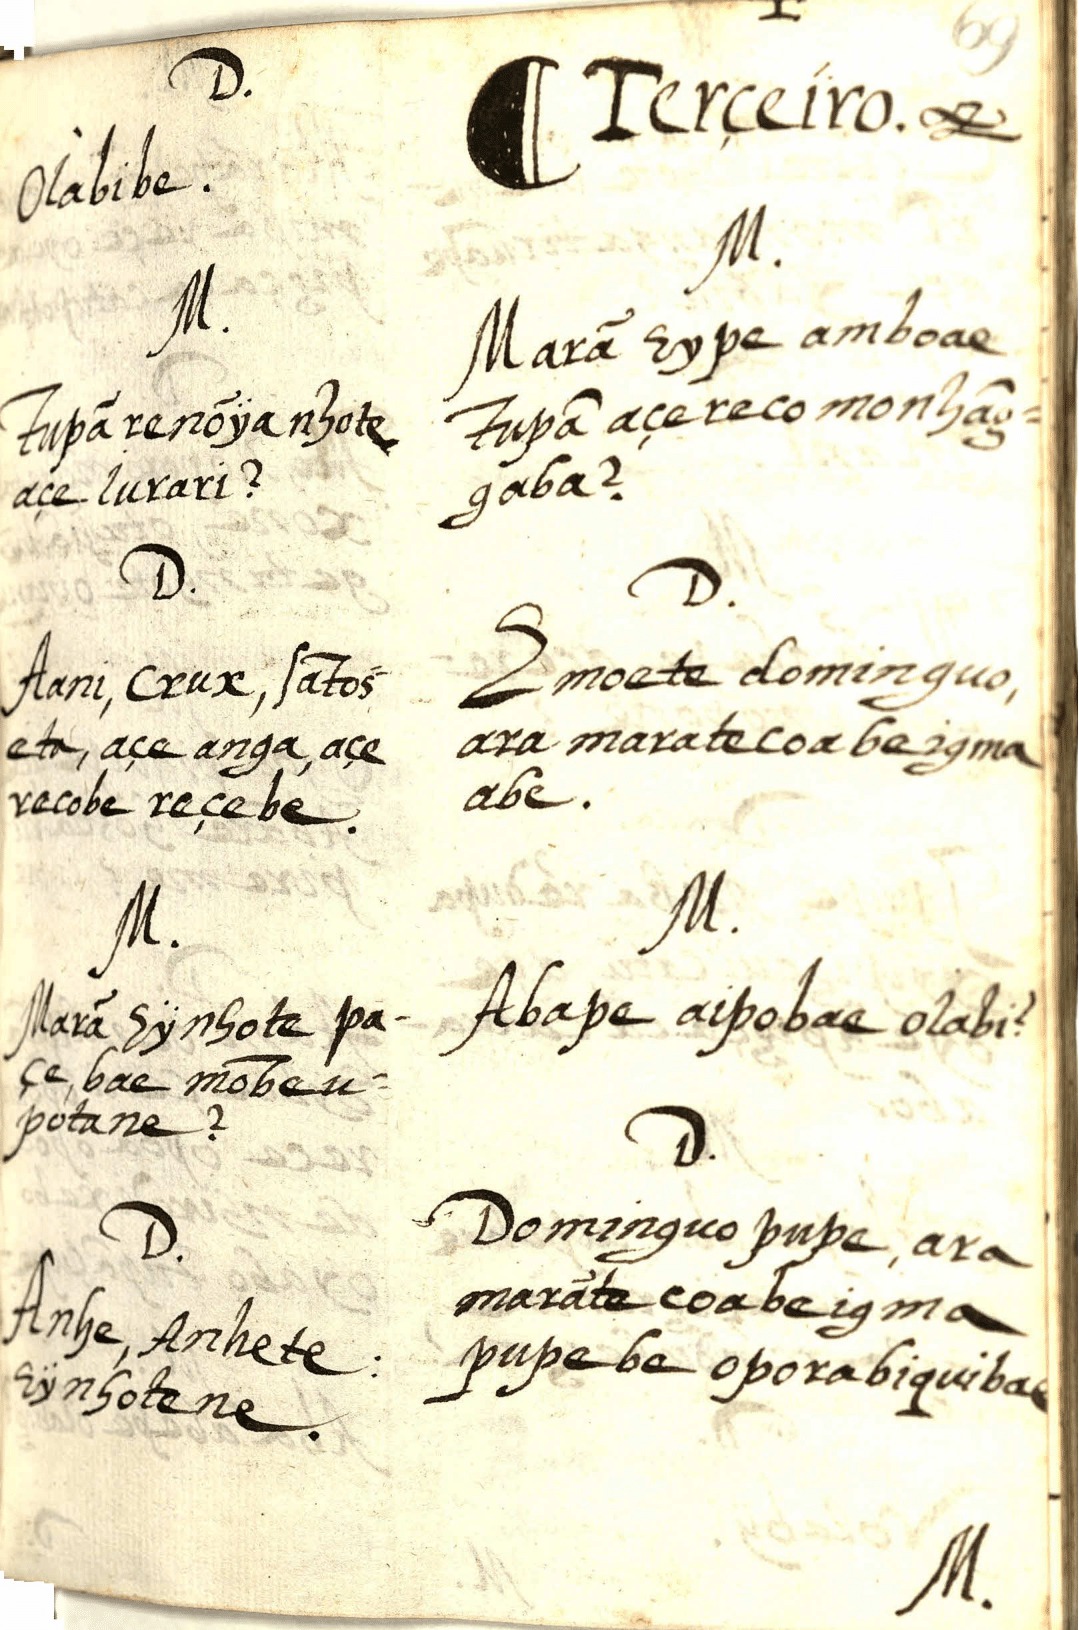 D.
Olabibe.
M.
Tupã renõÿa nhote
açe lurari?
D.
Aani, Crux, sãtos
eta, açe anga, açe
recobe reçebe.
M.
Marã Eÿnhote pa-
çe, bae mõbeu=
potane?
D.
Anhe, Anhete:
Eÿnhotene.
69
Terçeiro.
M.
Marã Eype amboae
Tupã açereco monhãg=
gaba?
D.
Emoete dominguo,
ara maratecoabeigma
abe.
M.
Abape aipobae olabi?
D.
Dominguo pupe, ara
marãtecoabeigma
pupebe oporabiquibae
M.